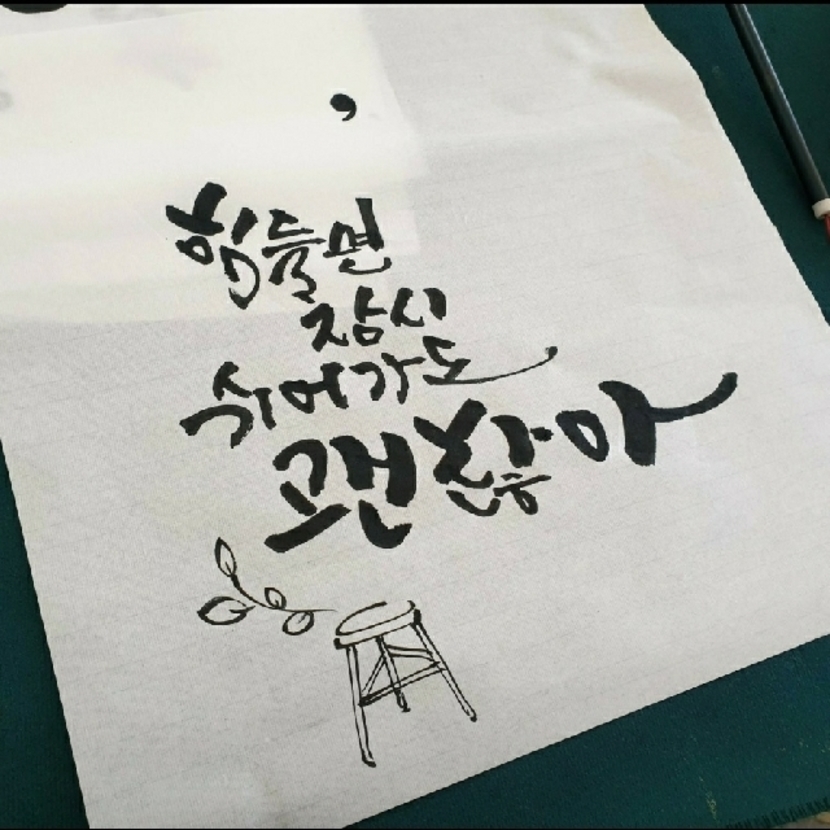 ,
힘들면
잠시
쉬어가도
괜찮아